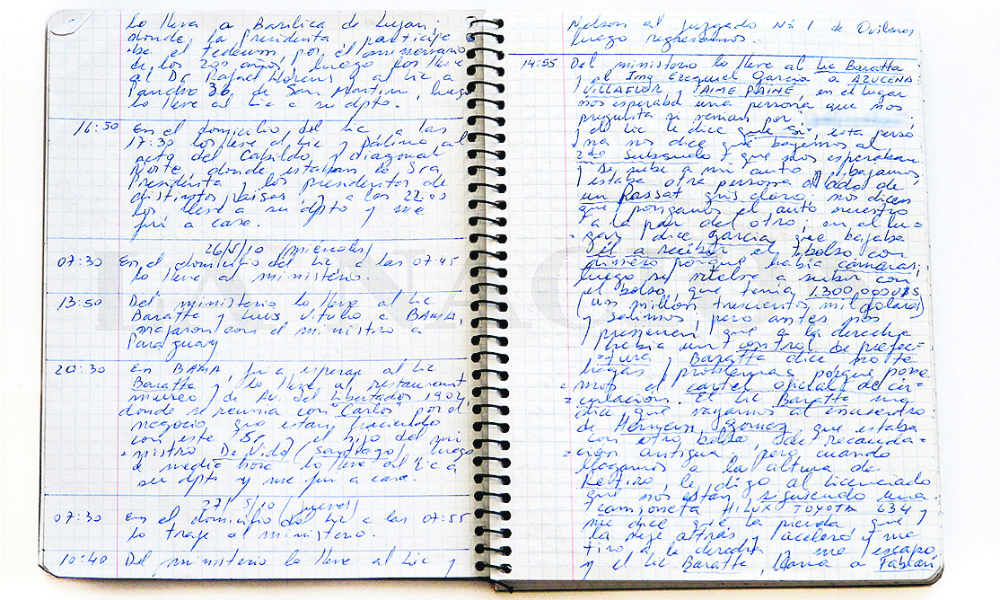 lo lleve a Basilica de Lujan,
donde la Presidenta participo
de el tedeum por el aniversario
de los 200 años, y luego los lleve
al Dr Rafael y al Lic a
de San Martin, luego
lo lleve al Lic a su dpto.
16:50 En el domicilio del Lic, a las
17:30 los lleve al Lic y al
acto del Cabildo y diagonal
Norte donde estaban la Sra
Presidenta y los presidentes de
distintos países, y a las 22:00
los lleve a su dpto y me
fui a casa.
26/5/10 (miercoles)
07:30 En el domicilio del Lic a las 07:45
lo lleve al ministerio.
13:50 Del ministerio lo lleve al Lic
Baratta y Luis Vitulio a BAMA,
viajaron con el ministro a
Paraguay
20:30 En BAMA, fui a esperar al Lic
Baratta y lo lleve al restaurant
museo, de Av. del Libertador 1902,
donde se reunia con "Carlos" por el
negocio, que estan haciendo
con este Sr, el hijo del mi-
nistro De Vido (Santiago), luego
a media hora lo lleve al Lic a
su dpto y me fui a casa.
27/5/10 (jueves)
07:30 En el domicilio del Lic a las 07:55
lo traje al ministerio.
10:40 Del ministerio lo lleve al Lic y
Nelson al juzgado Nº 1 de Quilmes
luego regresamos.
14:55 Del ministerio lo lleve al Lic Baratta
y al Ing Ezequiel Garcia a AZUCENA
VILLAFLOR y JAIME PAINE, en el lugar
nos esperaba una persona que nos
pregunta si venian por
y el Lic le dice que si, esta perso
na nos dice que bajemos al
2do Subsuelo y que nos esperaban
y se sube a mi auto y bajamos,
estaba otra persona al lado de
un Passat gris claro, nos dicen
que pongamos el auto nuestro
a la par del otro, en el lu-
gar dice Garcia que bajaba
él a recibir el bolso con
dinero porque habia camaras;
luego se vuelve a subir con
el bolso, que tenia 1.300.000 U$S
(un millon trescientos mil dolares)
y salimos, pero antes nos
previenen que a la derecha
habia un control de prefec-
tura y Baratta dice no te
hagas problemas porque pone
mos el cartel oficial de cir-
culación. El Lic Baratta me
dice que vayamos al encuentro
de Hernan Gomez, que estaba
con otro bolso, de recauda-
ción antigua, pero cuando
llegamos a la altura de
Retiro, le digo al Licenciado
que nos estan siguiendo una
camioneta HILUX TOYOTA 634 y
me dice que la pierda, que
la deje atrás y acelero y me
tiro a la derecha y me escapo,
y el Lic Baratta, llama a Fabian